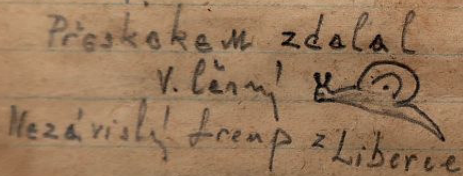 Přeskokem zdolal
V. Černý
Nezávislý tremp z Liberce